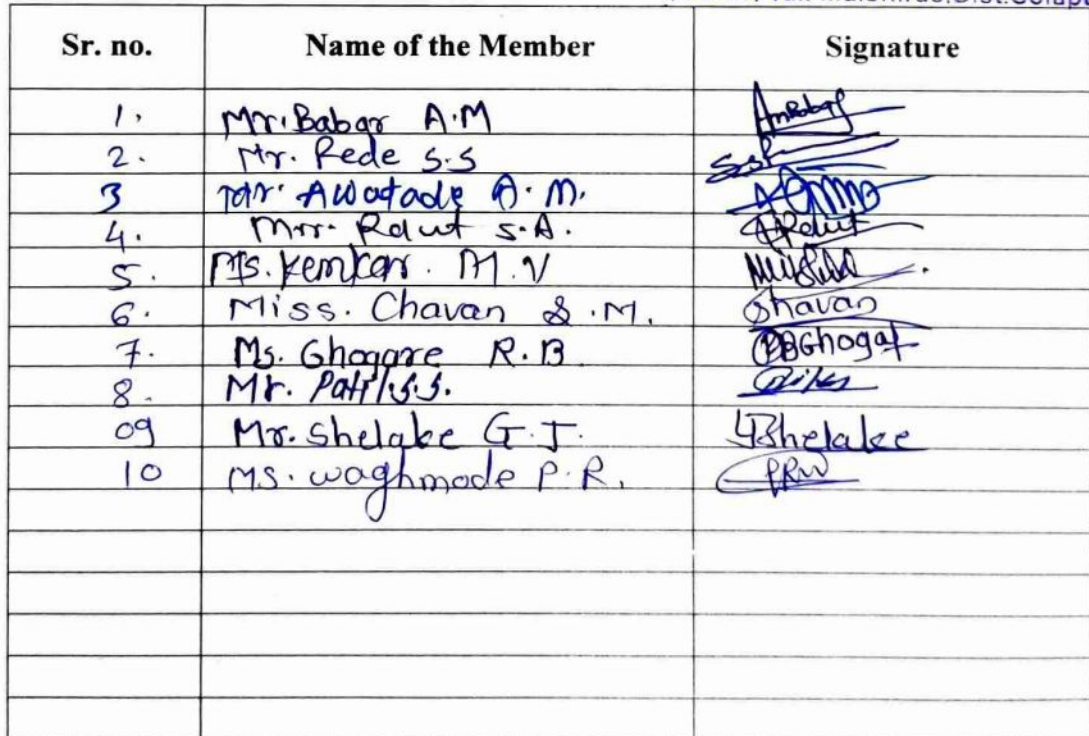 Sr. no. Name of the Member Signature
1. Mr. Babar A.M
2. Mr. Rede S.S
3 Mr. Awatade A.M.
4. Mr. Raut S.A.
5. Ms. Kemkar. M.V
6. Miss. Chavan S.M. Shavan
7. Ms. Ghogare R.B
8. Mr. Patil S.S.
09 Mr. Shelake G.J. Shelake
10 Ms. waghmode P.R. PRW